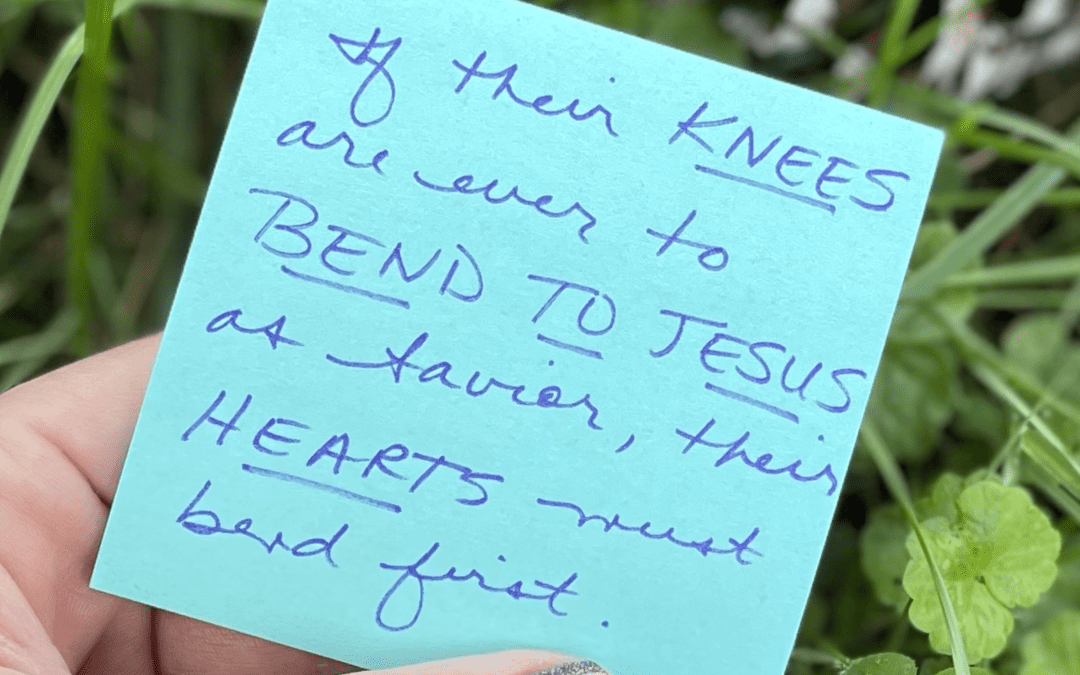 If their KNEES
are ever to
BEND TO JESUS
as savior, their
HEARTS must
bend first.